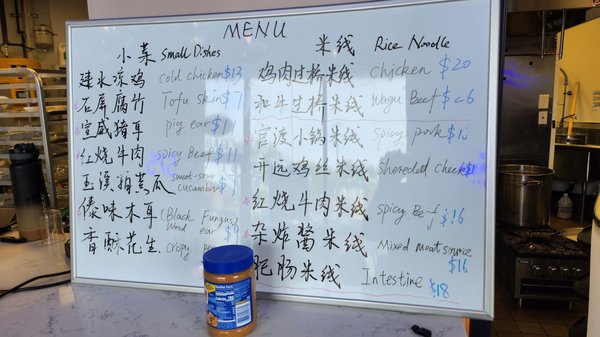 MENU
小菜 Small Dishes
建水凉鸡 cold chicken $13
石屏腐竹 Tofu skin $7
宣威猪耳 pig ear
红烧牛肉 spicy Beef $11
玉溪 黄瓜 sweet-sour cucumber
傣味木耳 (Black Fungus) wood ear $9
香酥花生 crispy
米线 Rice Noodle
鸡肉过桥米线 Chicken $20
肥牛过桥米线 Wagu Beef $26
官渡小锅米线 Spicy pork
开远鸡丝米线 Shereded
红烧牛肉米线 Spicy Beef $16
杂炸酱米线 Mixed meat source $16
肥肠米线 Intestine $18
Nutrition Facts